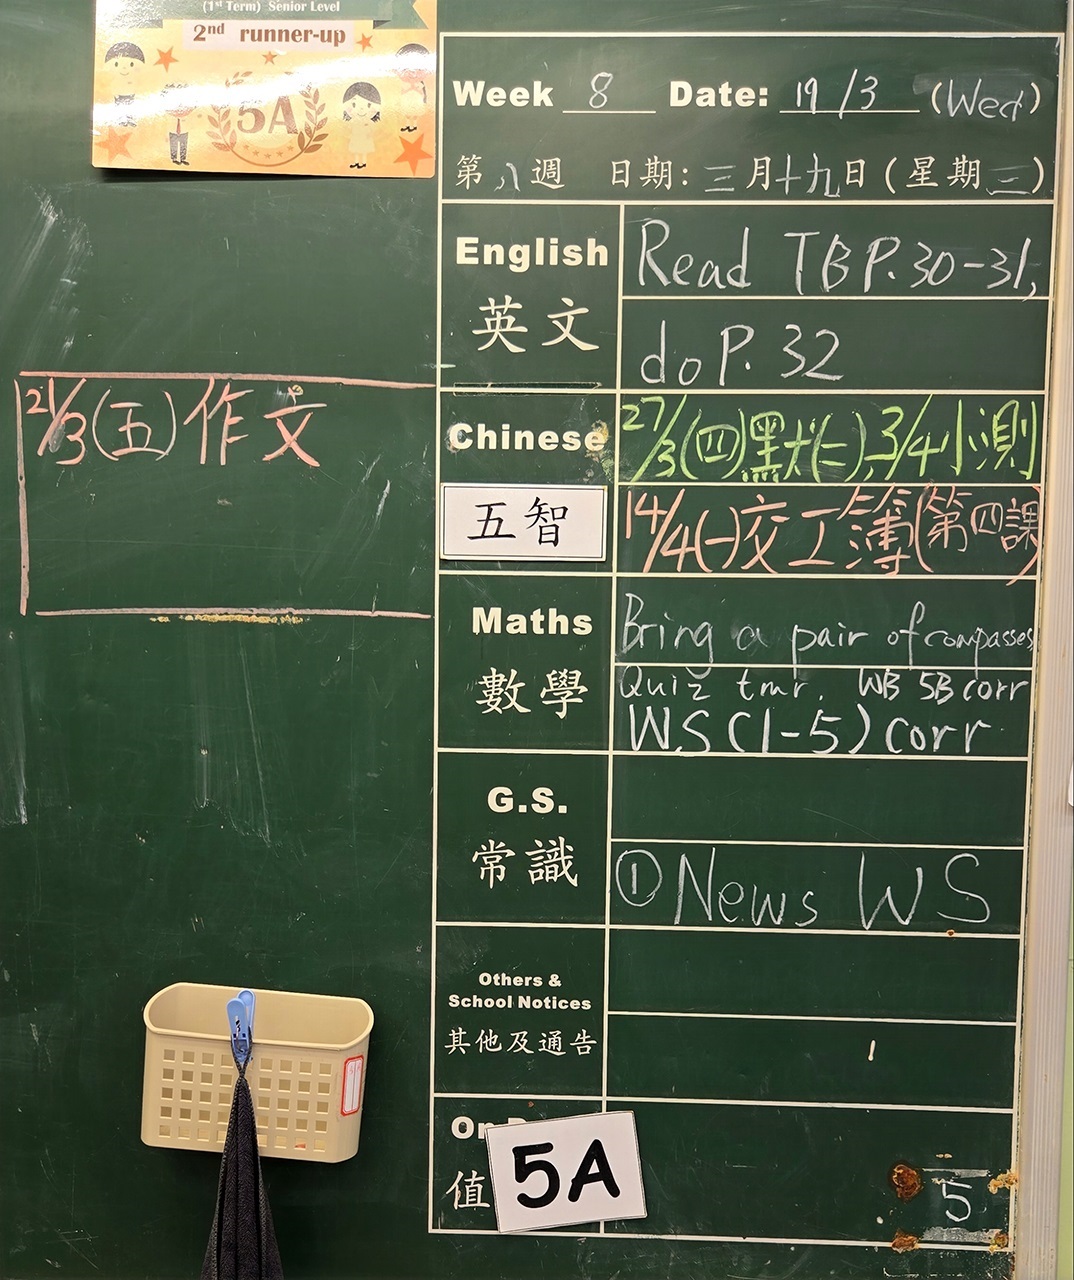 (1st Term) Senior Level
2nd runner-up
5A
Week 8 Date: 19/3 (Wed)
第八週 日期:三月十九日(星期三)
English
英文
Read TB P.30-31,
do P. 32
21/3(五)作文
Chinese
27/3(四)默(二),3/4小測
五智
14/4(一)交工簿(第四課)
Maths
數學
Bring a pair of compasses
Quiz tmr. WB 5B corr
W.S(1-5) corr
G.S.
常識
① News WS
Others &
School Notices
其他及通告
1
On
值
5A
5